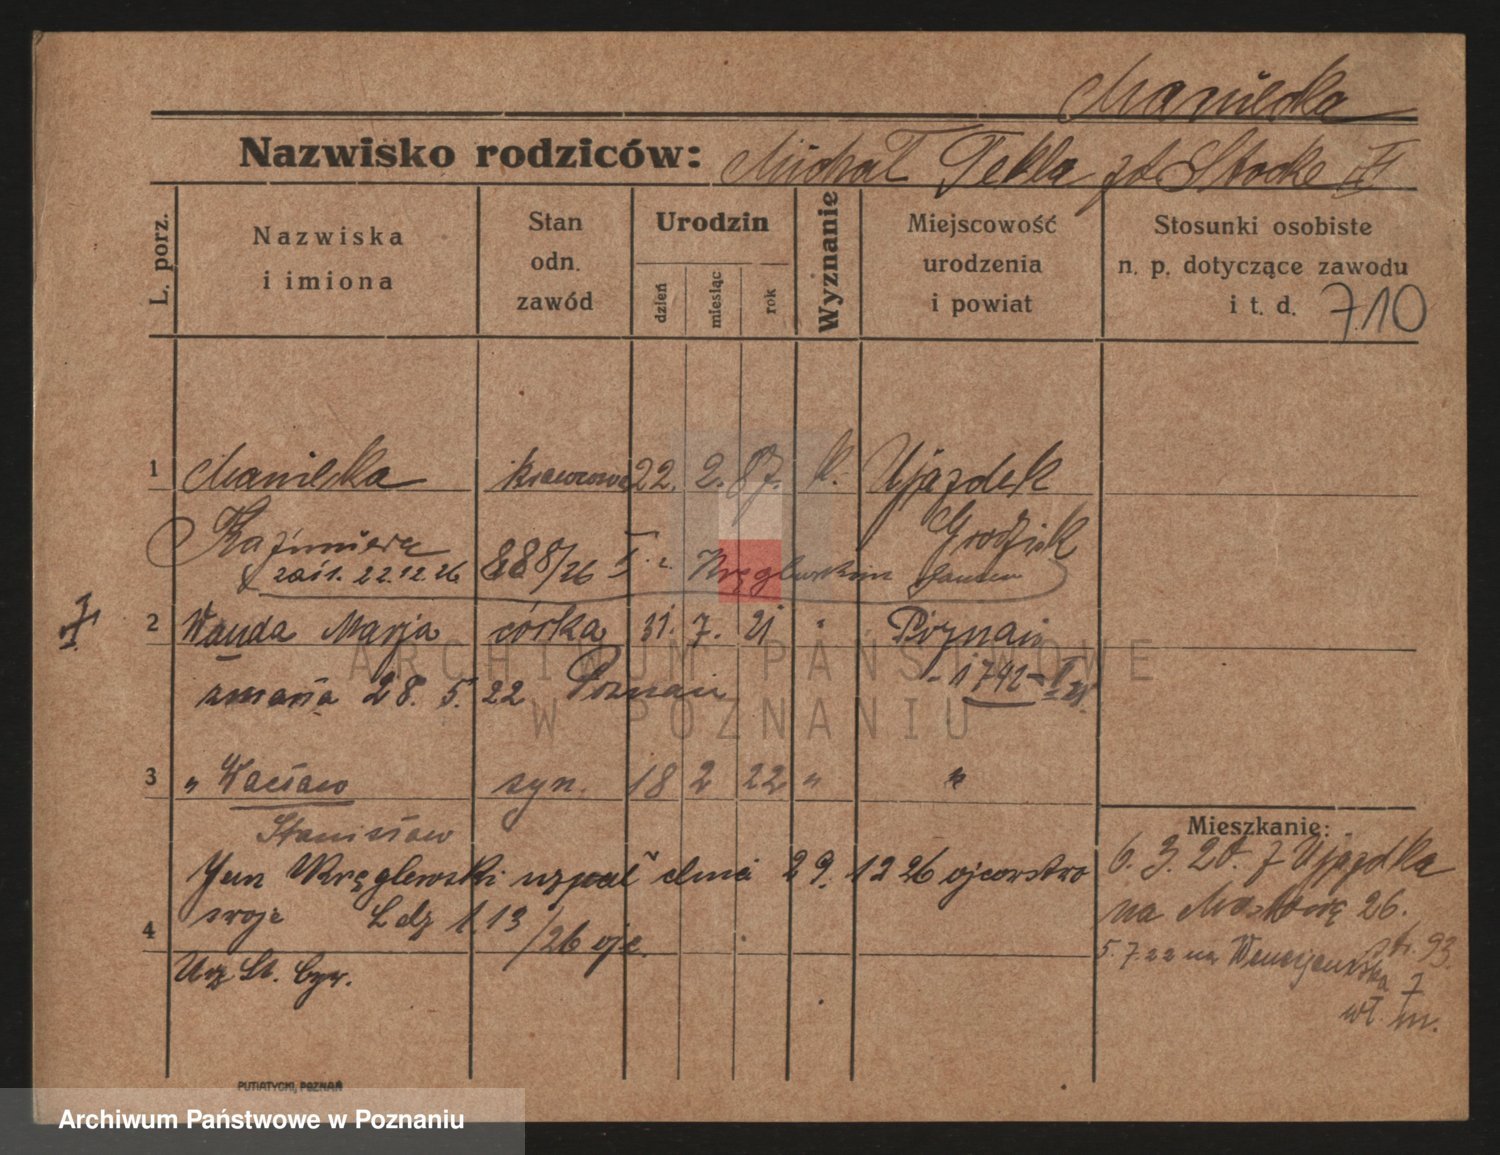 Manielka
Nazwisko rodziców: Michał Tekla zd Stocke
L. porz.
Nazwiska i imiona
Stan odn. zawód
Urodzin
dzień
miesiąc
rok
Wyznanie
Miejscowość urodzenia i powiat
Stosunki osobiste n. p. dotyczące zawodu i t. d. 710
1 Manielka krawcowa 22. 2. 87. k. Ujazdek
Kazimiera Grodzisk
zaśl. 22.12.26 888/26 Kręglewskim
2 Wanda Marja córka 31. 7. 21 " Poznań
zmarła 28. 5. 22 Poznań 1742
3 " Wacław syn. 18 2 22 " "
Stanisław
Mieszkanie:
Jan Kręglewski uznał dnia 29. 12 26 ojcostwo
swoje Ldz 113/26 ojc.
4
Urz St. Cyw.
6. 3. 20. z Ujazdka
na 26.
tr. 93.
5. 7. 22 na Wenecjańska 7
wł. m.
PUTIATYCKI, POZNAŃ
ARCHIWUM PAŃSTWOWE
W POZNANIU
Archiwum Państwowe w Poznaniu